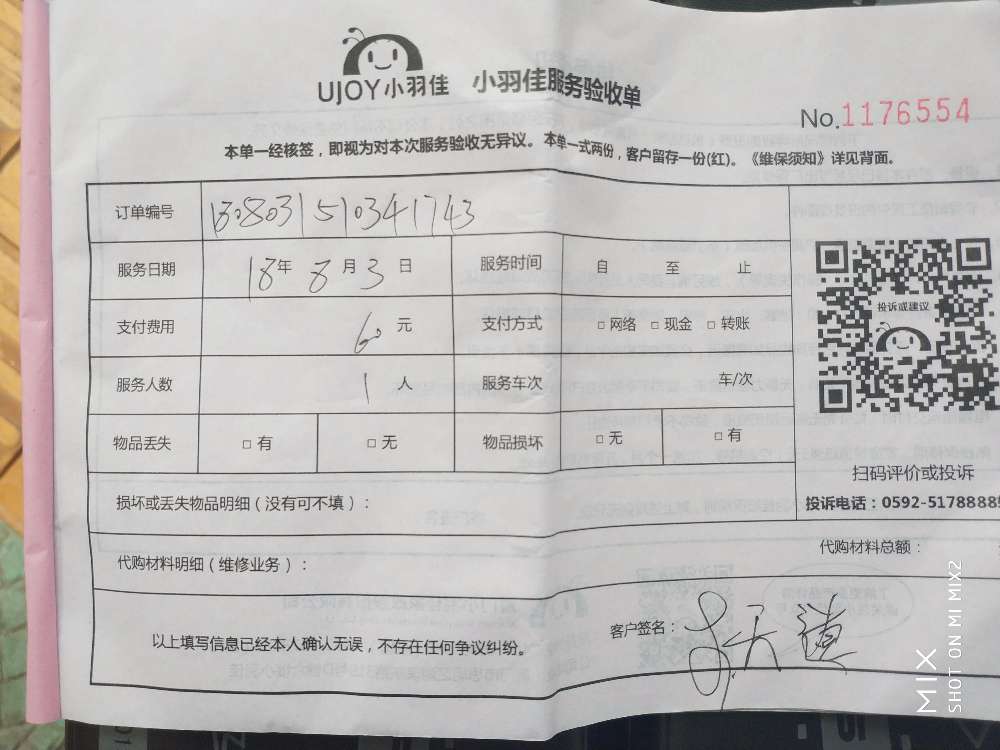 UJOY小羽佳 小羽佳服务验收单
No.1176554
本单一经核签，即视为对本次服务验收无异议。本单一式两份，客户留存一份(红)。《维保须知》详见背面。
订单编号 180803151034 1743
服务日期 18年 8月 3日 服务时间 自 至 止
支付费用 60元 支付方式 □网络 □现金 □转账
服务人数 1人 服务车次 车/次
物品丢失 □有 □无 物品损坏 □无 □有
投诉或建议
扫码评价或投诉
投诉电话：0592-5178888
损坏或丢失物品明细（没有可不填）：
代购材料明细（维修业务）：
代购材料总额：
以上填写信息已经本人确认无误，不存在任何争议纠纷。
客户签名：
MIX
SHOT ON MI MIX2